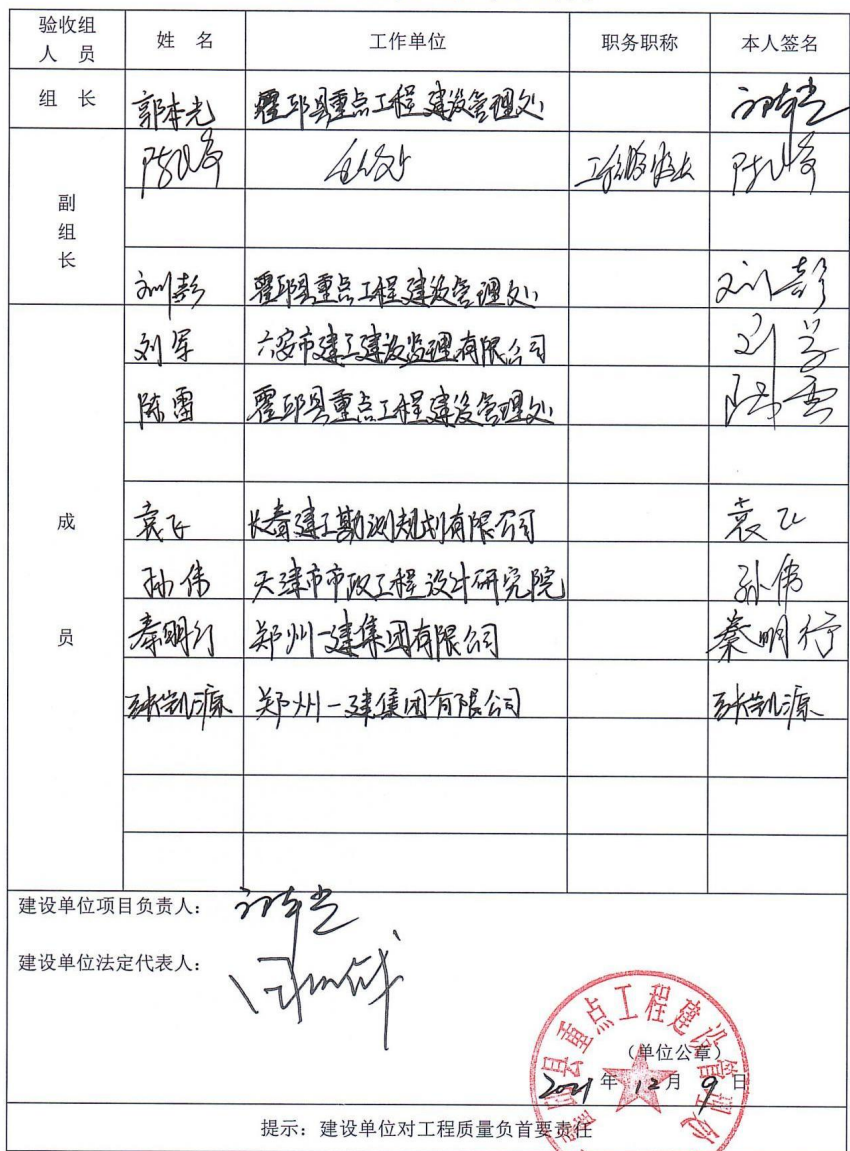 验收组人员 姓 名 工作单位 职务职称 本人签名
组 长 郭本光 霍邱县重点工程建设管理处 郭本光
副组长
刘彭 霍邱县重点工程建设管理处 刘彭
成员
刘军 六安市建工建设监理有限公司 刘军
陈雷 霍邱县重点工程建设管理处 陈雷
袁飞 长春建工勘测规划有限公司 袁飞
孙伟 天津市市政工程设计研究院 孙伟
秦明行 郑州一建集团有限公司 秦明行
张凯源 郑州一建集团有限公司 张凯源
建设单位项目负责人: 郭本光
建设单位法定代表人:
霍邱县重点工程建设管理处
(单位公章)
2021年12月9日
提示:建设单位对工程质量负首要责任